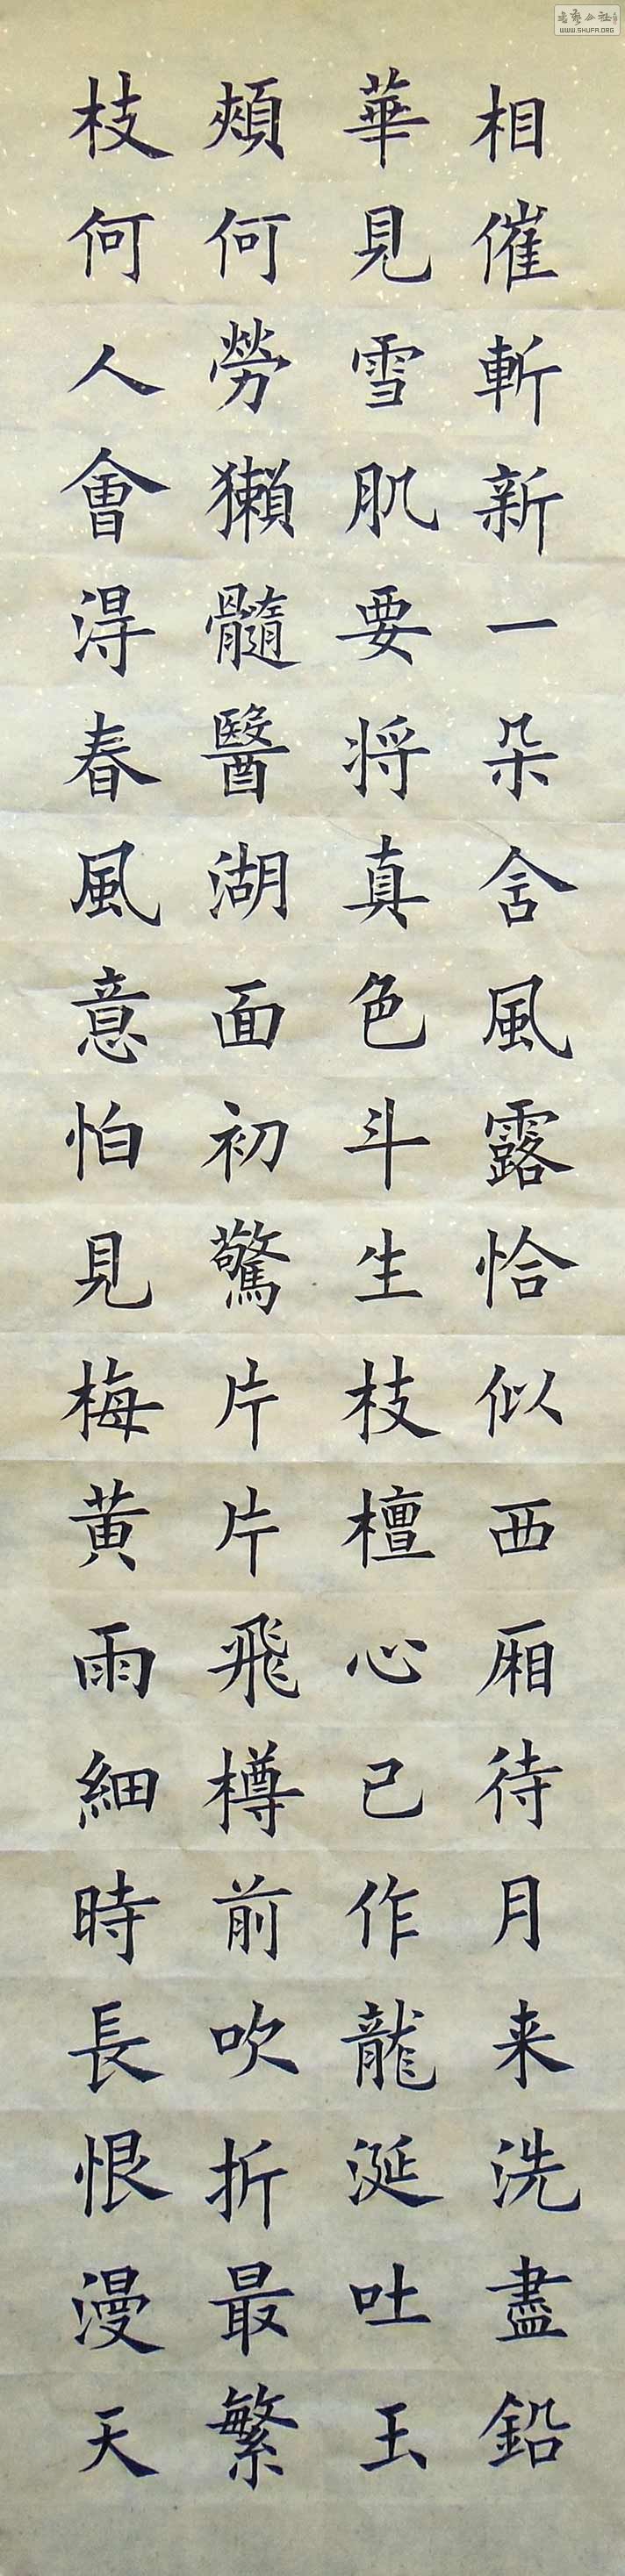 相催斬新一朵含風露恰似西廂待月来洗盡鉛
華見雪肌要將真色斗生枝檀心已作龍涎吐玉
頰何勞獺髓醫湖面初驚片片飛樽前吹折最繁
枝何人會得春風意怕見梅黄雨細時長恨漫天
WWW.SHUFA.ORG